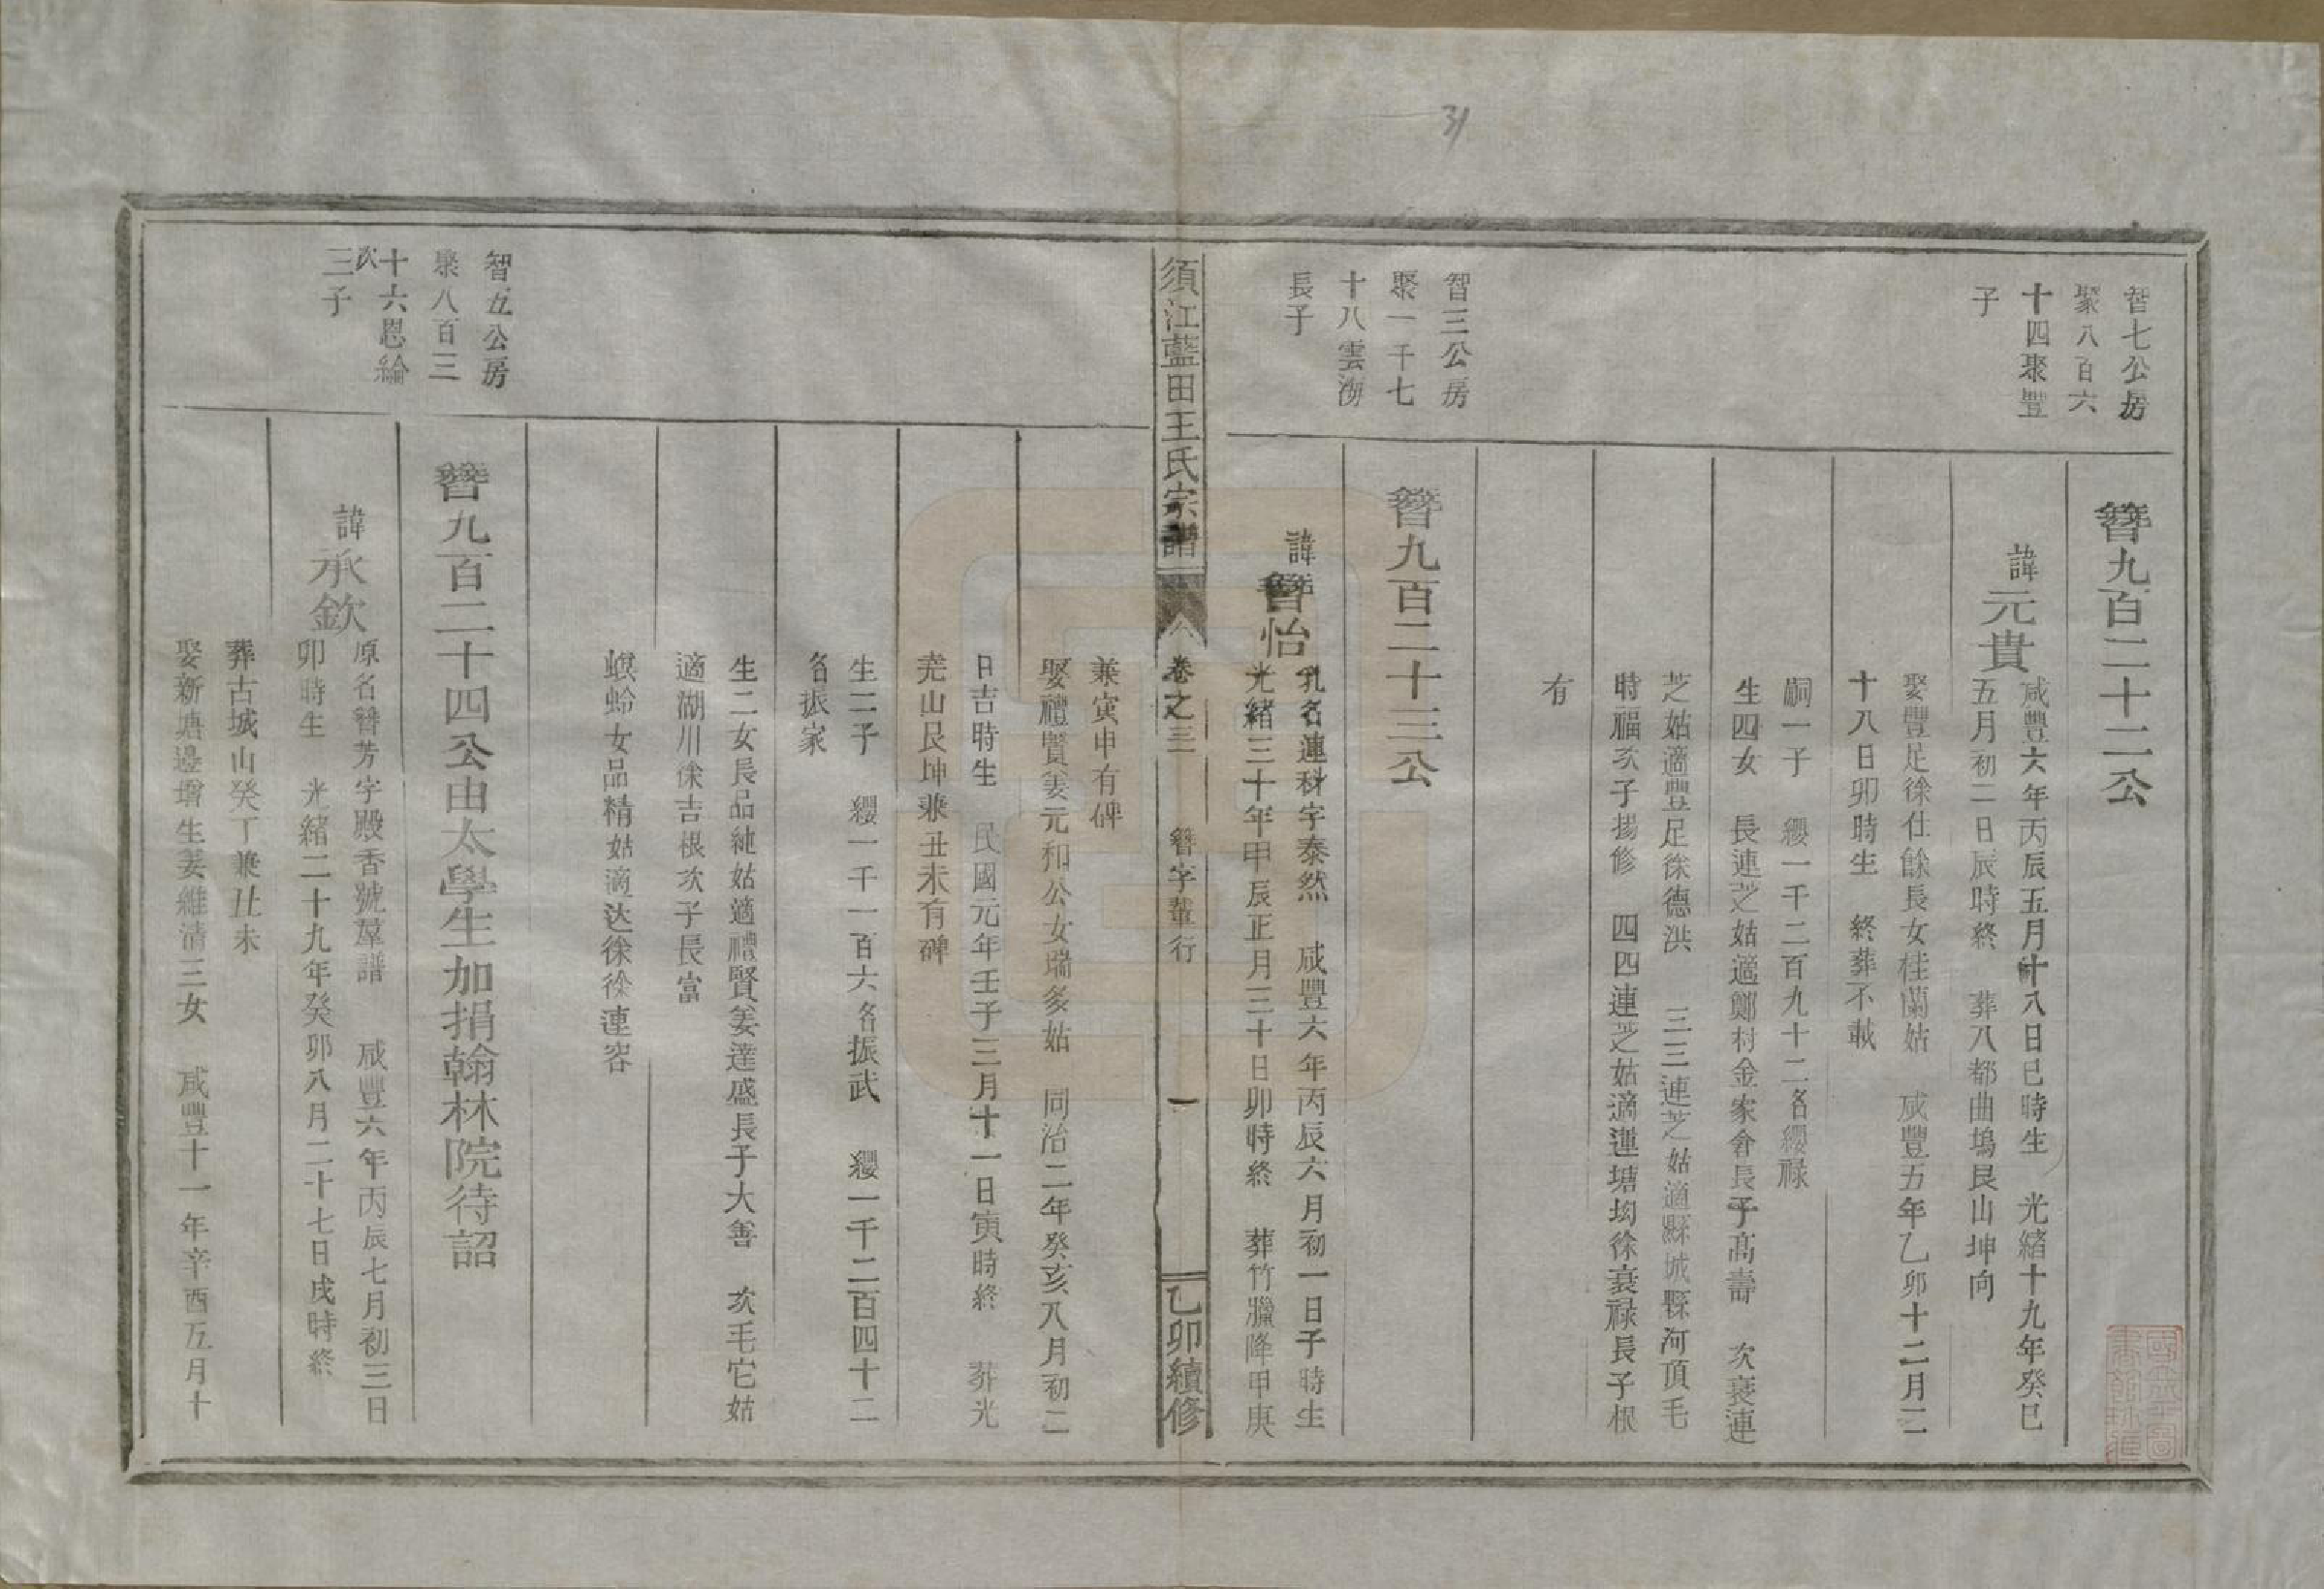 31
智七公房
聚八百六
十四聚豐
子
簪九百二十二公
諱元貴
咸豐六年丙辰五月十八日巳時生　光緒十九年癸巳
五月初二日辰時終　葬八都曲塢艮山坤向
娶豐足徐仕餘長女桂蘭姑　咸豐五年乙卯十二月二
十八日卯時生　終葬不載
嗣一子　纓一千二百九十二名纓祿
生四女　長連芝姑適鄭村金家會長子髙壽　次衰連
芝姑適豐足徐德洪　三三連芝姑適縣城縣河頂毛
時福次子揚修　四四連芝姑適蓮塘㘭徐衰祿長子根
有
智三公房
聚一千七
十八雲海
長子
簪九百二十三公
諱簪怡
乳名連材字泰然　咸豐六年丙辰六月初一日子時生
光緒三十年甲辰正月三十日卯時終　葬竹隴降甲庚
須江藍田王氏宗譜
卷之三
簪字輩行
一
乙卯續修
兼寅申有碑
娶禮賢姜元和公女瑞多姑　同治二年癸亥八月初二
日吉時生　民國元年壬子三月十一日寅時終　葬光
尭山艮坤兼丑未有碑
生二子　纓一千一百六名振武　纓一千二百四十二
名振家
生二女長品純姑適禮賢姜達盛長子大善　次毛它姑
適湖川徐吉根次子長富
螟蛉女品精姑適达徐徐連容
智五公房
聚八百三
十六恩綸
次三子
簪九百二十四公由太學生加捐翰林院待詔
諱承欽
原名簪芳字殿香號羣譜　咸豐六年丙辰七月初三日
卯時生　光緒二十九年癸卯八月二十七日戌時終
葬古城山癸丁兼丑未
娶新塘邊增生姜維清三女　咸豐十一年辛酉五月十